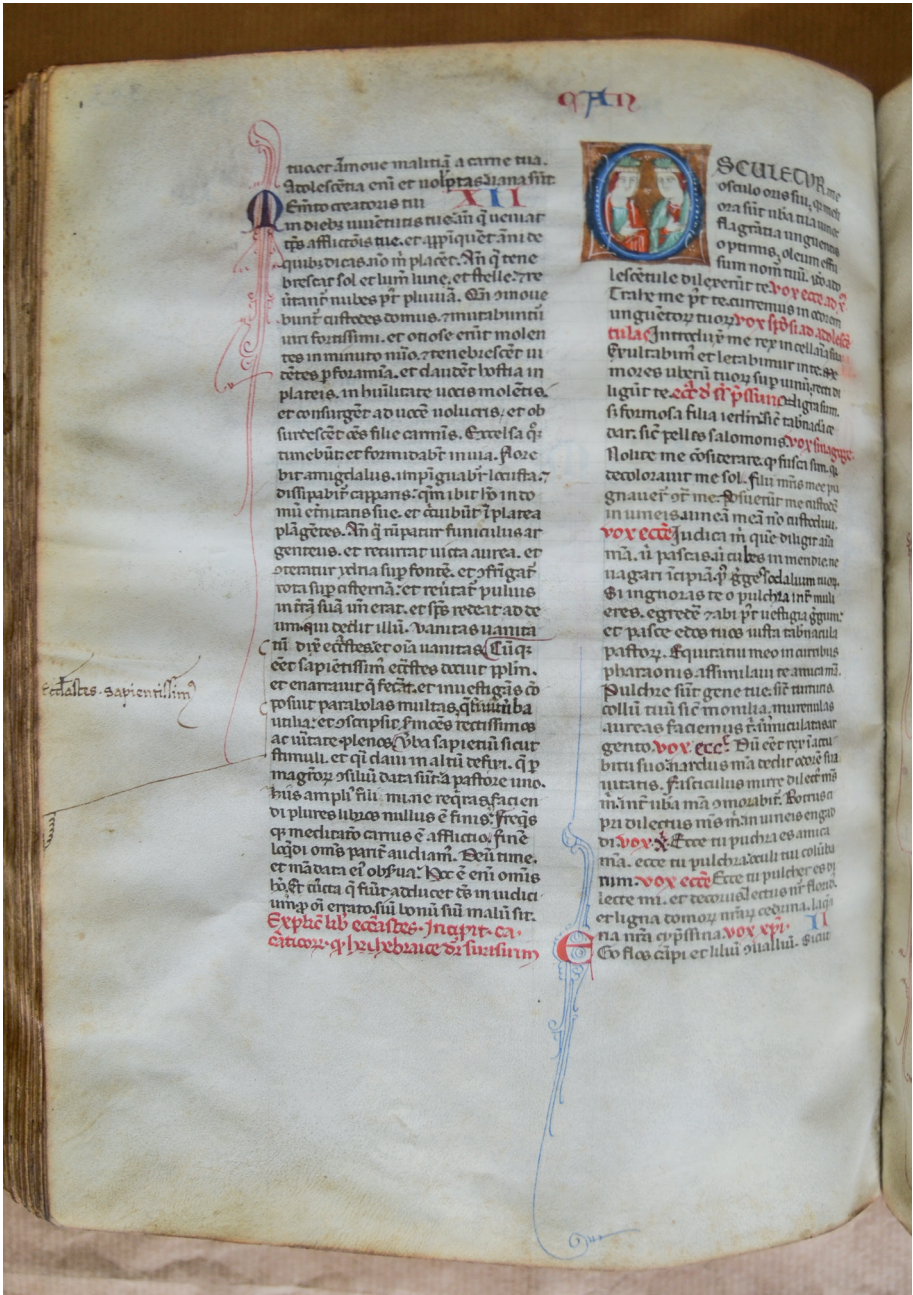 CAN
tuo. et amoue malitiā a carne tua.
Adolescētia enī et uolptas uana sūt.
XII
Memto creatoris tui
in diebꝫ iuuētutis tue. añ q̄ ueniat
tp̄s afflictōis tue. et apropiquēt ani de
quibꝫ dicas. nō m̄ placēt. Añ q̄ tene
brescat sol et lum̄ lune, et stelle. ⁊ re
uutant̄ nubes pꝰt pluuiā. Qn̄ ꝯmoue
bunt̄ custodes domus. ⁊ nutabunt̄
uiri fortissimi. et otiose erūt molen
tes in minuto nūo. ⁊ tenebrescēt ui
dētes ꝑ foramīa. et claudēt hostia in
plateis. in hūilitate uocis molētis.
et consurgēt ad uocē uolucris. et ob
surdescēt oēs filie carmīs. Excelsa q̄ꝫ
timebūt. et formidabt̄ in uia. Flore
bit amigdalus. inpīguabit̄ locusta. ⁊
dissipabit̄ capparis. qm̄ ibit hō in do
mū et̄nitatis sue. et circuibūt ī platea
plāgētes. Añ q̄ rūpatur funiculus ar
genteus. et recurrat uicta aurea. et
ꝯteratur ydria suꝑ fontē. et ꝯfrīgat̄
rota suꝑ cisternā. et reu̇tat̄ puluis
in t̄rā suā un̄ erat. et sp̄s redeat ad de
um. qui dedit illū. Vanitas uanita
tū dix̄ ecc̄astes. et oīa uanitas. Cūqꝫ
eēt sapientissim̄ ecc̄astes docuit pp̄lm.
et enarrauit q̄ fecat̄. et inuestigās cō
posuit parabolas multas. q̄siuit u̇ba
utilia. et ꝯscripsit s̄mōes rectissimos
ac u̇itate plenos. Vba sapientū sicut
stimuli. et q̄i claui in altū defixi. q̄ ꝑ
magr̄oꝝ ꝯsiliū data sūt a pastore uno.
his ampliꝰ fili mi. ne reqiras. facien
di plures libros nullus ē finis. Freqn̄s
qꝫ meditatō carnis ē afflictio. finē
loqdi om̄s parit̄ audiam̄. Deū time.
et mādata eiꝰ obs̄ua. hoc ē enī omīs
hō. Et cūcta q̄ fiūt adducet dš in iudici
um. ꝓ oī errato. siū bonū siū malū sit.
Explic̄ lib̄ ecc̄astes. Incipit ca
ticoꝝ. q̄ lib̄ hebraice dr̄ sirasirim
Ecc̄astes. sapientissim̄
OSCULETVR me
osculo oris sui, q̄ meli
ora sūt ubēra tua uino
flagrātia unguētis
optimis, oleum effu
sum nom̄ tuū. ido ado
lescētule dilexerūt te. vox ecc̄e ad x̄
Trahe me pꝰt te. curremus in odorem
unguētoꝝ tuoꝝ. vox sp̄si ad adolescē
tulas Introduxꝰ me rex in cellaria sua
Exultabim̄ et letabimur in te. me
mores uberū tuoꝝ suꝑ uinū. recti di
ligūt te. Nigra sum.
s; formosa filia ierl̄m. sic̄ tab̄nacla ce
dar. sic̄ pelles salomonis. vox sinagoge
Nolite me cōsiderare. ꝙ fusca sim. qꝛ
decolorauit me sol. filii mr̄is mee pu
gnauer̄ ꝯt̄ me. Posuerūt me custodē
in uineis. uineā meā nō custodiui.
vox ecc̄e Indica m̄ quē diligit aīa
mā. u̇ pascas. u̇ cubes in meridie. ne
uagari īcipiā pꝰt g̊ges sodalium tuoꝝ.
Si ingnoras te o pulchra int̄ muli
eres. egredē̄ ⁊ abi pꝰt uestigia g̊gum.
et pasce edos tuos iusta tab̄nacula
pastoꝝ. Equitatui meo in curribus
pharaonis assimilaui te amica mā.
Pulchre sūt gene tue. sic̄ turturis.
collū tuū sic̄ monilia. murenulas
aureas faciemus t̄. u̇miculatas ar
gento. vox ecc̄e. Dū eēt rex ī accu
bitu suo. nardus mā dedit odorē sua
uitatis. Fasciculus mirre dilectꝰ mš
m̄. int̄ ubēra mā ꝯmorabit̄. Botrus ci
pri dilectus mš m̄. in uineis engad
di. vox x̄. Ecce tu pulchra es amica
mā. ecce tu pulchra. oculi tui colūba
rum. vox ecc̄e Ecce tu pulcher es di
lecte mi. et decorus. lectus nr̄ florid.
et ligna domoꝝ nr̄aꝝ cedrina. laq̄a
ria nr̄a cyp̄ssina. vox xp̄i. II
Ego flos cāpi et liliū ꝯualliū. Sicut